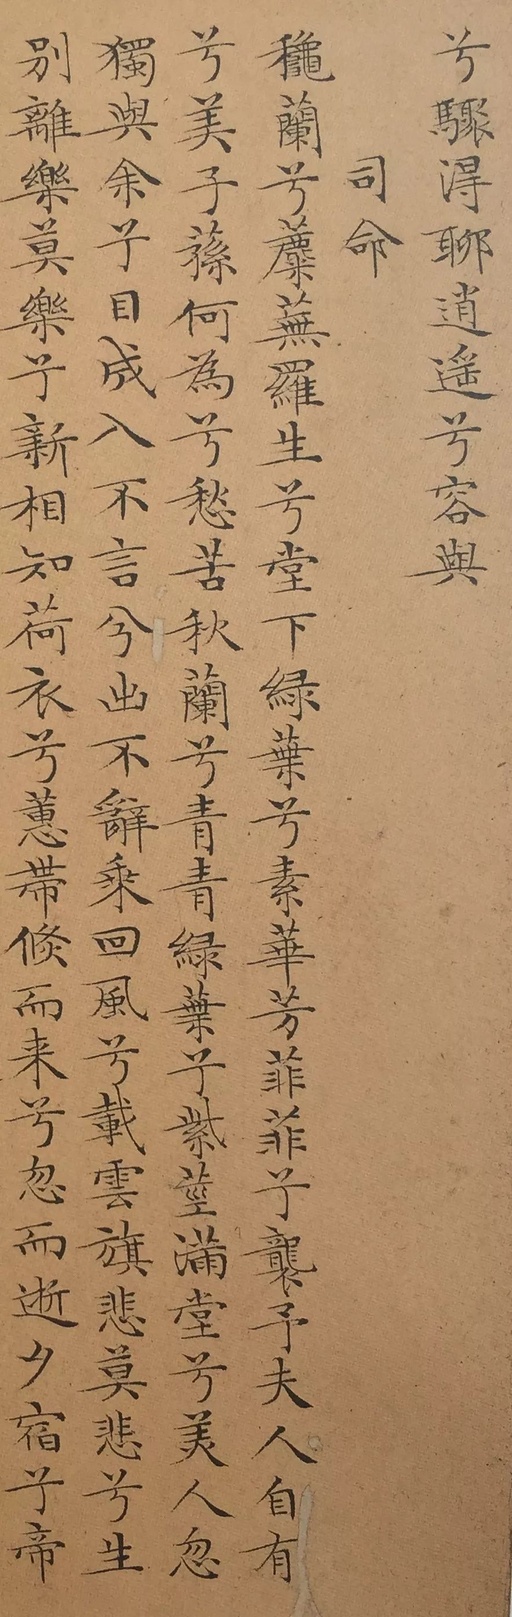 兮驟得聊逍遥兮容與
司命
穐蘭兮蘪蕪羅生兮堂下緑葉兮素華芳菲菲兮襲予夫人自有
兮美子蓀何為兮愁苦秋蘭兮青青緑葉兮紫莖滿堂兮美人忽
獨與余兮目成入不言兮出不辭乘回風兮載雲旗悲莫悲兮生
別離樂莫樂兮新相知荷衣兮蕙帶倏而来兮忽而逝夕宿兮帝